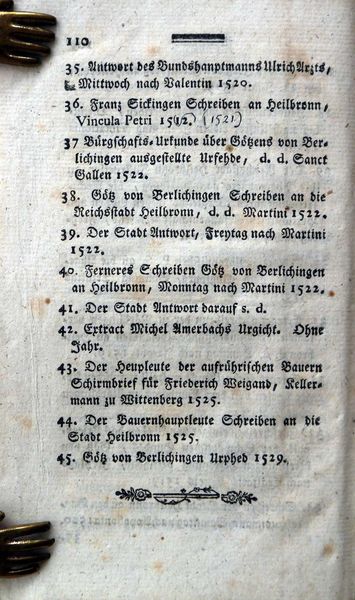 110
35. Antwort des Bundshauptmanns Ulrich Arzts,
Mittwoch nach Valentin 1520.
36. Franz Sickingen Schreiben an Heilbronn,
Vincula Petri 1512. (1521)
37 Bürgschafts-Urkunde über Götzens von Ber-
lichingen ausgestellte Urfehde, d. d. Sanct
Gallen 1522.
38. Götz von Berlichingen Schreiben an die
Reichsstadt Heilbronn, d. d. Martini 1522.
39. Der Stadt Antwort, Freytag nach Martini
1522.
40. Ferneres Schreiben Götz von Berlichingen
an Heilbronn, Monntag nach Martini 1522.
41. Der Stadt Antwort darauf s. d.
42. Extract Michel Amerbachs Urgicht. Ohne
Jahr.
43. Der Heupleute der aufrührischen Bauern
Schirmbrief für Friederich Weigand, Keller-
mann zu Wittenberg 1525.
44. Der Bauernhauptleute Schreiben an die
Stadt Heilbronn 1525.
45. Götz von Berlichingen Urphed 1529.